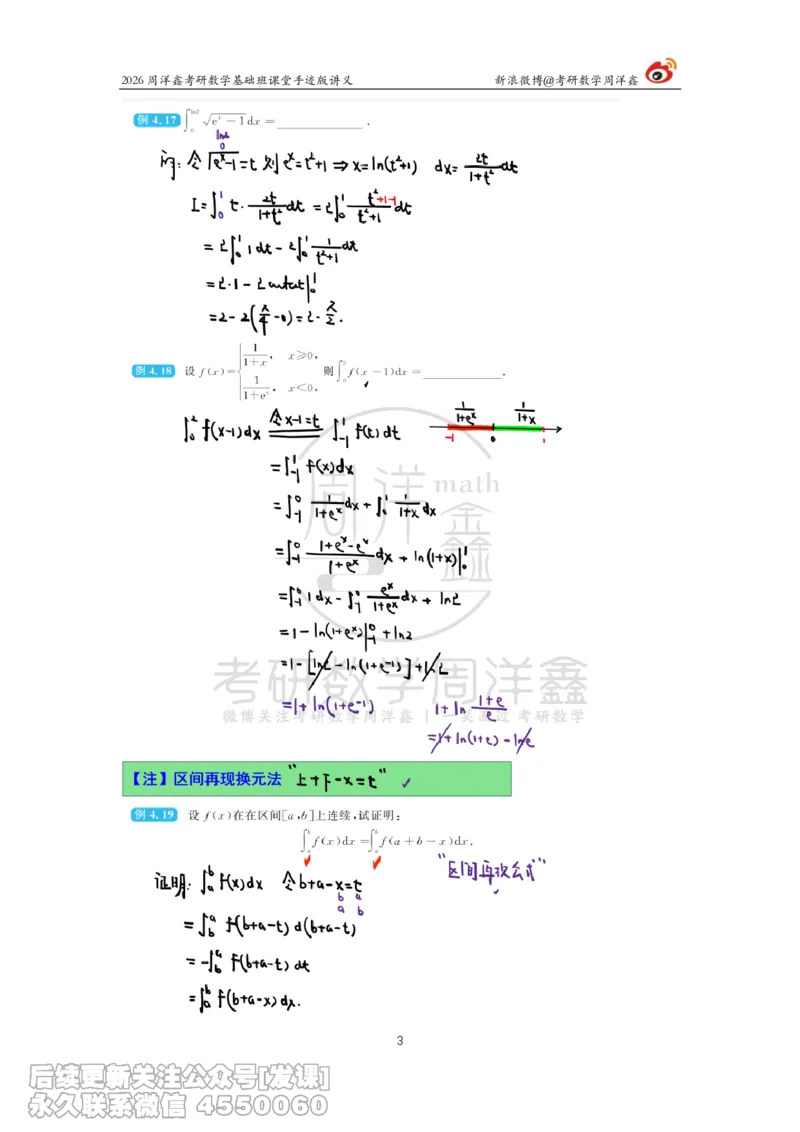 2026周洋鑫考研数学基础班课堂手迹版讲义 新浪微博@考研数学周洋鑫
例 4.17 ∫₀^{ln2} √(eˣ−1) dx = ______ .
ln2
0
问: 令√(eˣ-1)=t 则 eˣ=t²+1 ⇒ x=ln(t²+1) dx= 2t/(1+t²) dt
I=∫₀¹ t· 2t/(1+t²) dt = 2∫₀¹ (t²+1-1)/(t²+1) dt
= 2∫₀¹ 1 dt - 2∫₀¹ 1/(t²+1) dt
=2·1 - 2 arctant|₀¹
=2-2(π/4 -0)=2-π/2.
例 4.18 设 f(x)={ 1/(1+x), x≥0, 1/(1+eˣ), x<0, 则∫₀² f(x−1)dx = ______ .
∫₀² f(x-1)dx 令x-1=t = ∫₋₁¹ f(t) dt
1/(1+eˣ) 1/(1+x)
-1 0 1
=∫₋₁¹ f(x)dx
=∫₋₁⁰ 1/(1+eˣ) dx + ∫₀¹ 1/(1+x) dx
=∫₋₁⁰ (1+eˣ-eˣ)/(1+eˣ) dx + ln(1+x)|₀¹
=∫₋₁⁰ 1 dx - ∫₋₁⁰ eˣ/(1+eˣ) dx + ln2
=1-ln(1+eˣ)|₋₁⁰ +ln2
=1-[ln2-ln(1+e⁻¹)]+ln2
=1+ln(1+e⁻¹) 1+ln (1+e)/e
=1+ln(1+e)-lne
周洋鑫 math
考研数学周洋鑫
微博关注考研数学周洋鑫
考研数学
【注】区间再现换元法 “上+下-x=t” ✓
例 4.19 设 f(x)在在区间[a,b]上连续,试证明:
∫ₐᵇ f(x)dx=∫ₐᵇ f(a+b−x)dx.
“区间再现公式”
证明: ∫ₐᵇ f(x)dx 令b+a-x=t
b a
a b
=∫_b^a f(b+a-t) d(b+a-t)
=-∫_b^a f(b+a-t) dt
=∫ₐᵇ f(b+a-x) dx.
3
后续更新关注公众号[发课]
永久联系微信 4550060